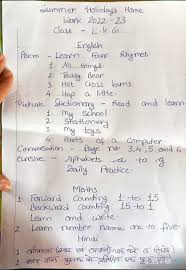 Summer Holidays Home
Work 2022-23
Class - L.K.G
English
Poem - Learn Four Rhymes
1 All things
2 Teddy Bear
3 Hot Cross buns
4 Hop a little
Picture Dictionary - Read and learn
1 My
2 Stationery
3 My toys
4 Parts of a Computer
Conversation - Page no 3,4,5 and 6
Cursive - Alphabets a to g
Daily Practice
Maths
1 Forward Counting 1 to 15
Backward Counting 15 to 1
Learn and write
2 Learn number name one to five
Hindi
1
2